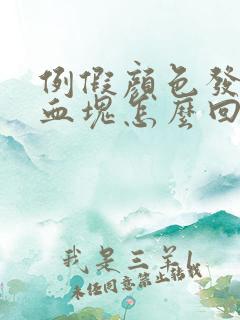 例假顏色發
血塊怎麼回
我是三羊
未经同意禁止转载